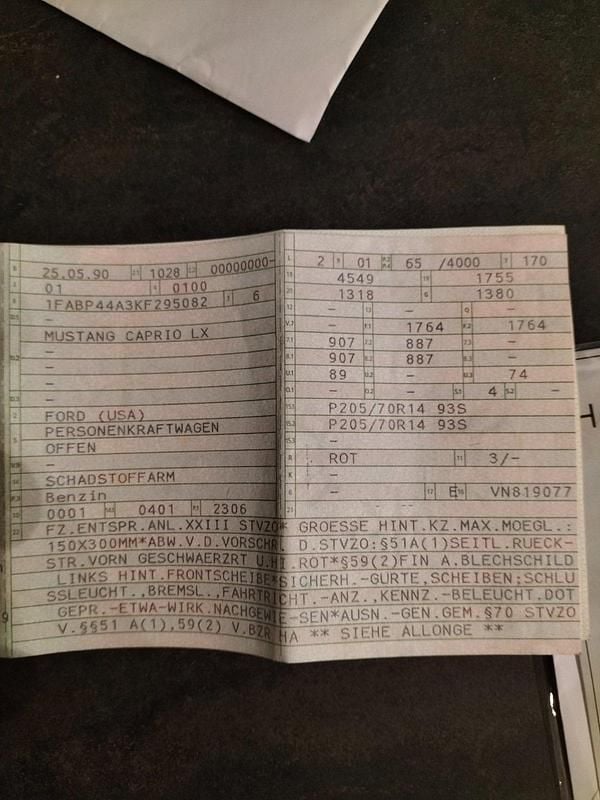 25.05.90 1028 00000000-
01 0100
1FABP44A3KF295082 6
-
MUSTANG CAPRIO LX
-
-
-
-
FORD (USA)
PERSONENKRAFTWAGEN
OFFEN
-
SCHADSTOFFARM
Benzin
0001 0401 2306
L 2 9 01 65 /4000 T 170
18 4549 19 1755
20 1318 G 1380
12 - 13 - Q -
V.7 - F.1 1764 F.2 1764
7.1 907 7.2 887 7.3 -
8.1 907 8.2 887 8.3 -
U.1 89 U.2 - U.3 74
O.1 - O.2 - S.1 4 S.2 -
15.1 P205/70R14 93S
15.2 P205/70R14 93S
15.3 -
R ROT 11 3/-
K -
6 - 17 E 16 VN819077
21
22 FZ.ENTSPR.ANL.XXIII STVZO* GROESSE HINT.KZ.MAX.MOEGL.:
150X300MM*ABW.V.D.VORSCHR. D.STVZO:§51A(1)SEITL.RUECK-
STR.VORN GESCHWAERZRT U.HI.ROT*§59(2)FIN A.BLECHSCHILD
LINKS HINT.FRONTSCHEIBE*SICHERH.-GURTE,SCHEIBEN;SCHLU
SSLEUCHT.,BREMSL.,FAHRTRICHT.-ANZ.,KENNZ.-BELEUCHT.DOT
GEPR.-ETWA-WIRK.NACHGEWIE-SEN*AUSN.-GEN.GEM.§70 STVZO
V.§§51 A(1),59(2) V.BZR HA ** SIEHE ALLONGE **